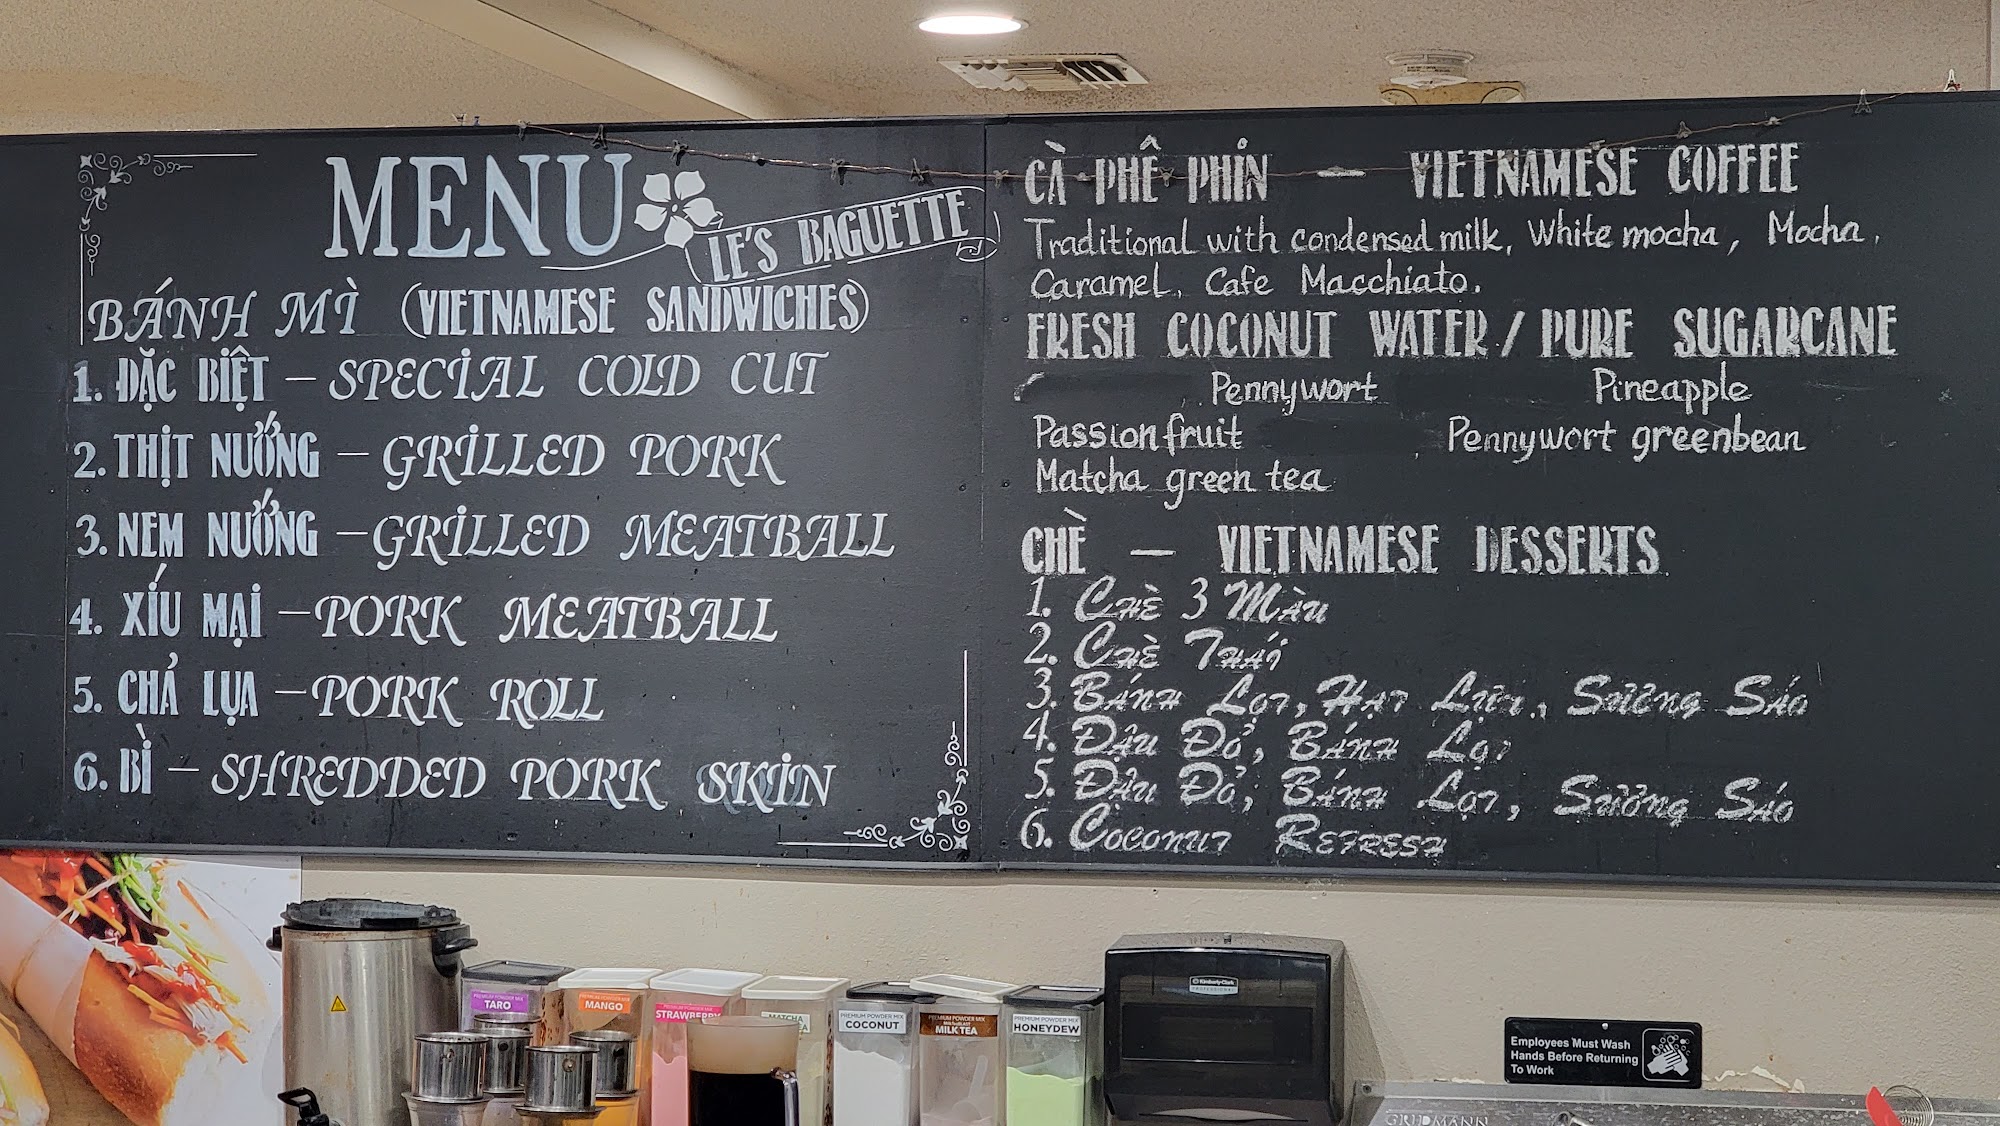 MENU
LE'S BAGUETTE
BÁNH MÌ (VIETNAMESE SANDWICHES)
1. ĐẶC BIỆT – SPECIAL COLD CUT
2. THỊT NƯỚNG – GRILLED PORK
3. NEM NƯỚNG – GRILLED MEATBALL
4. XÍU MẠI – PORK MEATBALL
5. CHẢ LỤA – PORK ROLL
6. BÌ – SHREDDED PORK SKIN
CÀ PHÊ PHIN – VIETNAMESE COFFEE
Traditional with condensed milk, White mocha, Mocha,
Caramel, Cafe Macchiato.
FRESH COCONUT WATER / PURE SUGARCANE
Pennywort Pineapple
Passion fruit Pennywort greenbean
Matcha green tea
CHÈ – VIETNAMESE DESSERTS
1. CHÈ 3 MÀU
2. CHÈ THÁI
3. BÁNH LỌT, HẠT LỰU, SƯƠNG SÁO
4. ĐẬU ĐỎ, BÁNH LỌT
5. ĐẬU ĐỎ, BÁNH LỌT, SƯƠNG SÁO
6. COCONUT REFRESH
PREMIUM POWDER MIX
TARO
PREMIUM POWDER MIX
MANGO
PREMIUM POWDER MIX
STRAWBERRY
MATCHA
PREMIUM POWDER MIX
COCONUT
PREMIUM POWDER MIX
MILK TEA
PREMIUM POWDER MIX
HONEYDEW
Kimberly-Clark
PROFESSIONAL
Employees Must Wash
Hands Before Returning
To Work
GRIDMANN